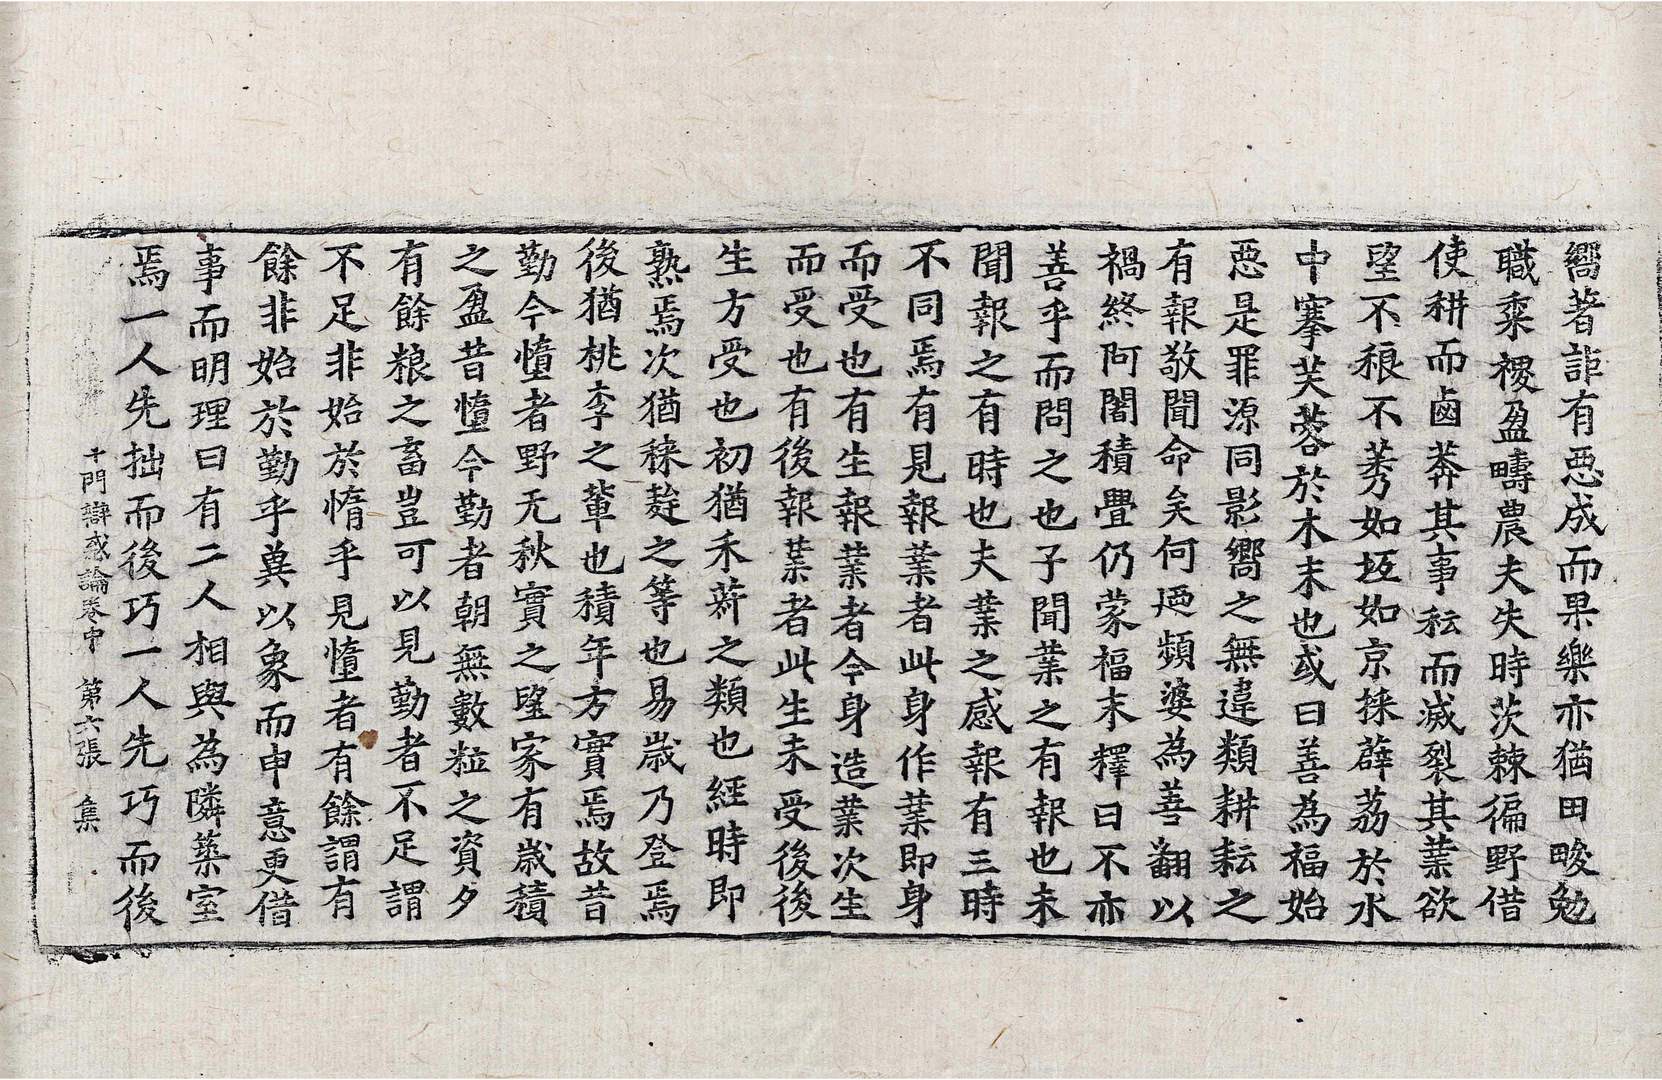 嚮著詎有惡成而果樂亦猶田畯勉
職黍稷盈疇農夫失時茨棘徧野借
使耕而鹵莽其事耘而滅裂其業欲
望不稂不莠如坻如京採薜荔於水
中搴芙蓉於木末也或曰善為福始
惡是罪源同影嚮之無違類耕耘之
有報敬聞命矣何迺頻婆為善翻以
禍終阿闍積舋仍蒙福末釋曰不亦
善乎而問之也子聞業之有報也未
聞報之有時也夫業之感報有三時
不同焉有見報業者此身作業即身
而受也有生報業者今身造業次生
而受也有後報業者此生未受後後
生方受也初猶禾莇之類也經時即
熟焉次猶秣麰之等也易歲乃登焉
後猶桃李之輩也積年方實焉故昔
勤今憻者野无秋實之望家有歲積
之盈昔憻今勤者朝無數粒之資夕
有餘粮之畜豈可以見勤者不足謂
不足非始於惰乎見憻者有餘謂有
餘非始於勤乎莫以象而申意更借
事而明理曰有二人相與為隣築室
焉一人先拙而後巧一人先巧而後
十門辯惑論卷中 第六張 集